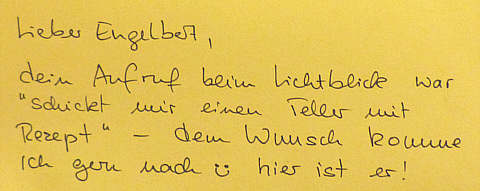 Lieber Engelbert,
dein Aufruf beim Lichtblick war
"schickt mir einen Teller mit
Rezept" - dem Wunsch komme
ich gern nach ☺ hier ist er!